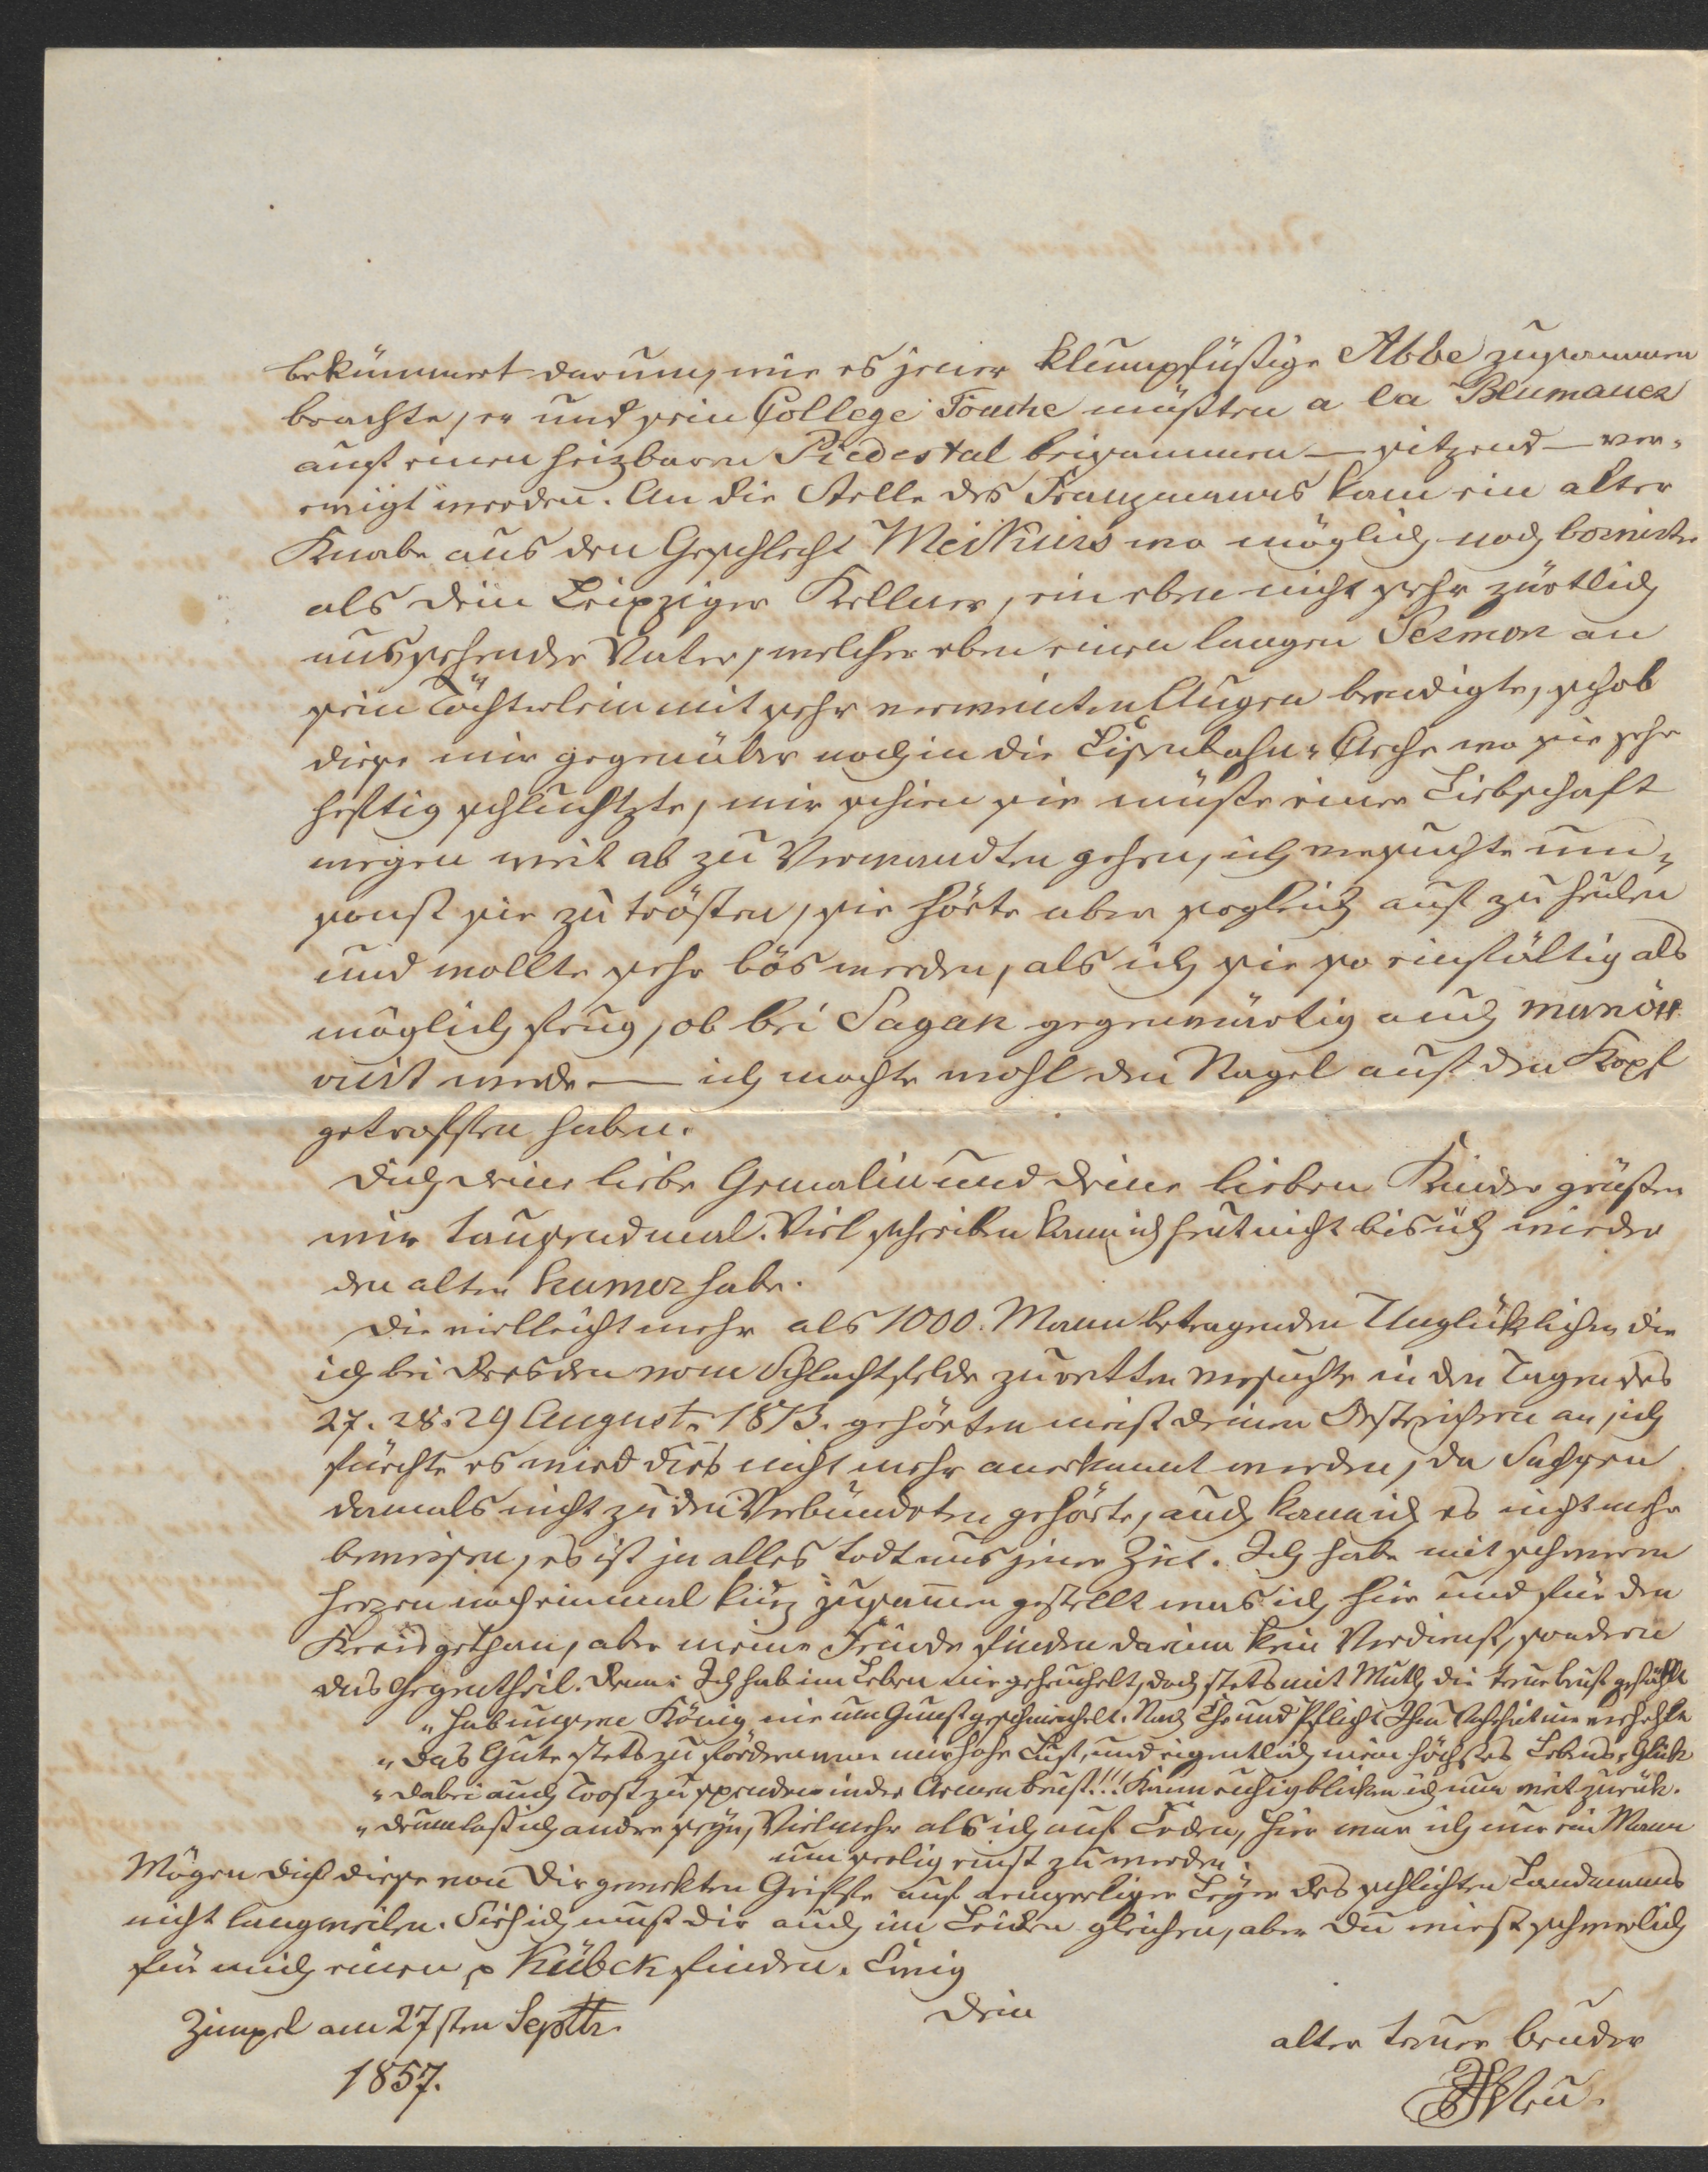 bekümmert darum, wie es jener klumpfüßige Abbe zusammen
brachte, er und sein College Fouche müßten a la Blumauer
auf einen heizbaren Piedestal beisammen — sitzend — ver-
ewigt werden. An die Stelle des Franzmanns kam ein alter
Knabe aus den Geschlecht wo möglich noch bornirter
als dein Leipziger Kellner, ein eben nicht sehr zärtlich
aussehender Vater, welcher eben einen langen Sermon an
sein Töchterlein mit sehr verweinten Augen beendigte, schob
diese mir gegenüber noch in die Eisenbahn-Arche wo sie sehr
heftig schluchzte, mir schien sie müßte einer Liebschaft
wegen weit ab zu Verwandten gehen, ich versuchte um-
sonst sie zu trösten, sie hörte aber sogleich auf zu heulen
und wollte sehr bös werden, als ich sie so einfältig als
möglich frug, ob bei Sagan gegenwärtig auch manöv
rirt werde — ich mochte wohl den Nagel auf den Kopf
getroffen haben.
Dich deine liebe Gemalin und deine lieben Kinder grüßen
wir tausendmal. Viel schreiben kann ich heut nicht bis ich wieder
den alten humor habe.
Die vielleicht mehr als 1000. Mann betragenden Unglücklichen die
ich bei Dresden vom Schlachtfelde zu retten versuchte in den Tagen des
27. 28. 29 August. 1813. gehörten meist deinen Oestreichern an, ich
fürchte es wird dies nicht mehr anerkannt werden, da Sachsen
damals nicht zu den Verbündeten gehörte, auch kann ich es nicht mehr
beweisen, es ist ja alles todt aus jener Zeit. Ich habe mit schwerem
Herzen noch einmal kurz zusammen gestellt was ich hier und für den
Kreis gethan, aber meine Feinde finden darinn kein Verdienst, sondern
das Gegentheil. Denn: Ich hab im Leben nie geheuchelt, doch stets mit Muth die treue Brust gestählt
„ Hab unserm König nie um Gunst geschmeichelt. Nach Ehr und Pflicht Ihm Wahrheit nie verhehlt
„ Das Gute stets zu fördern war mir hohe Lust, und eigentlich mein höchstes Lebens-Glück
„ Dabei auch Trost zu spenden in der Armen Brust!!! Kann ruhig blicken ich nun weit zurück.
„ Drum laß ich andre seyn, Vielmehr als ich auf Erden, hier war ich nur ein Mann
um seelig einst zu werden.
Mögen dich diese von Dir geweckten Griffe auf der Leyer des schlichten Landmanns
nicht langweilen. Sieh ich muß dir auch im Leiden gleichen, aber du wirst schwerlich
für mich einen Kübeck finden. Ewig
Dein
Zimpel am 27sten Septbr.
alter treuer Bruder
1857.